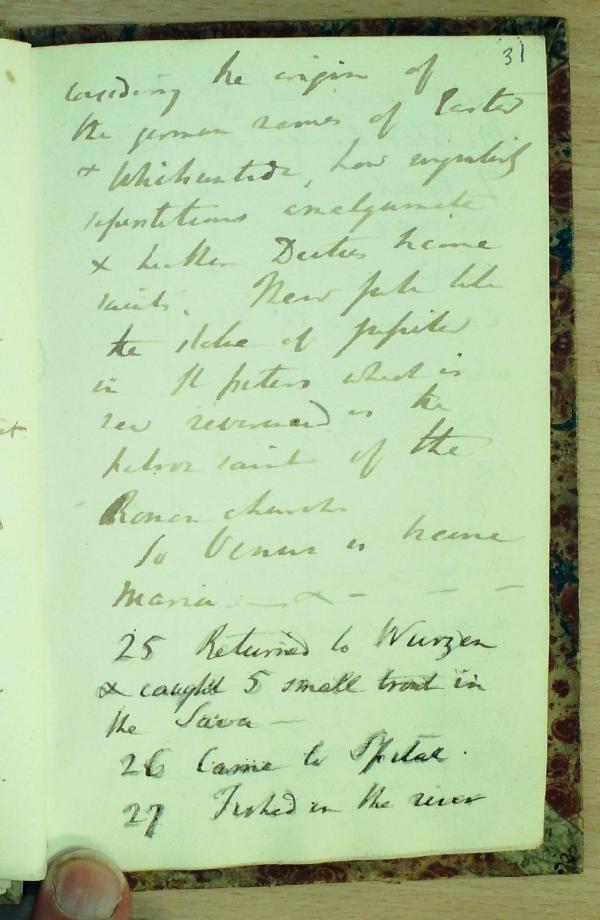 31
the origin of
the german names of Easter
& Whitsuntide, how singularly
superstitions amalgamate
& heathen Deities become
saints. New
the statue of Jupiter
in St Peters which is
now reverenced as the
patron saint of the
Roman church
So Venus is become
Maria — & - - -
25 Returned to Wurzen
& caught 5 small trout in
the Sava —
26 Came to Spital.
27 Fished in the river